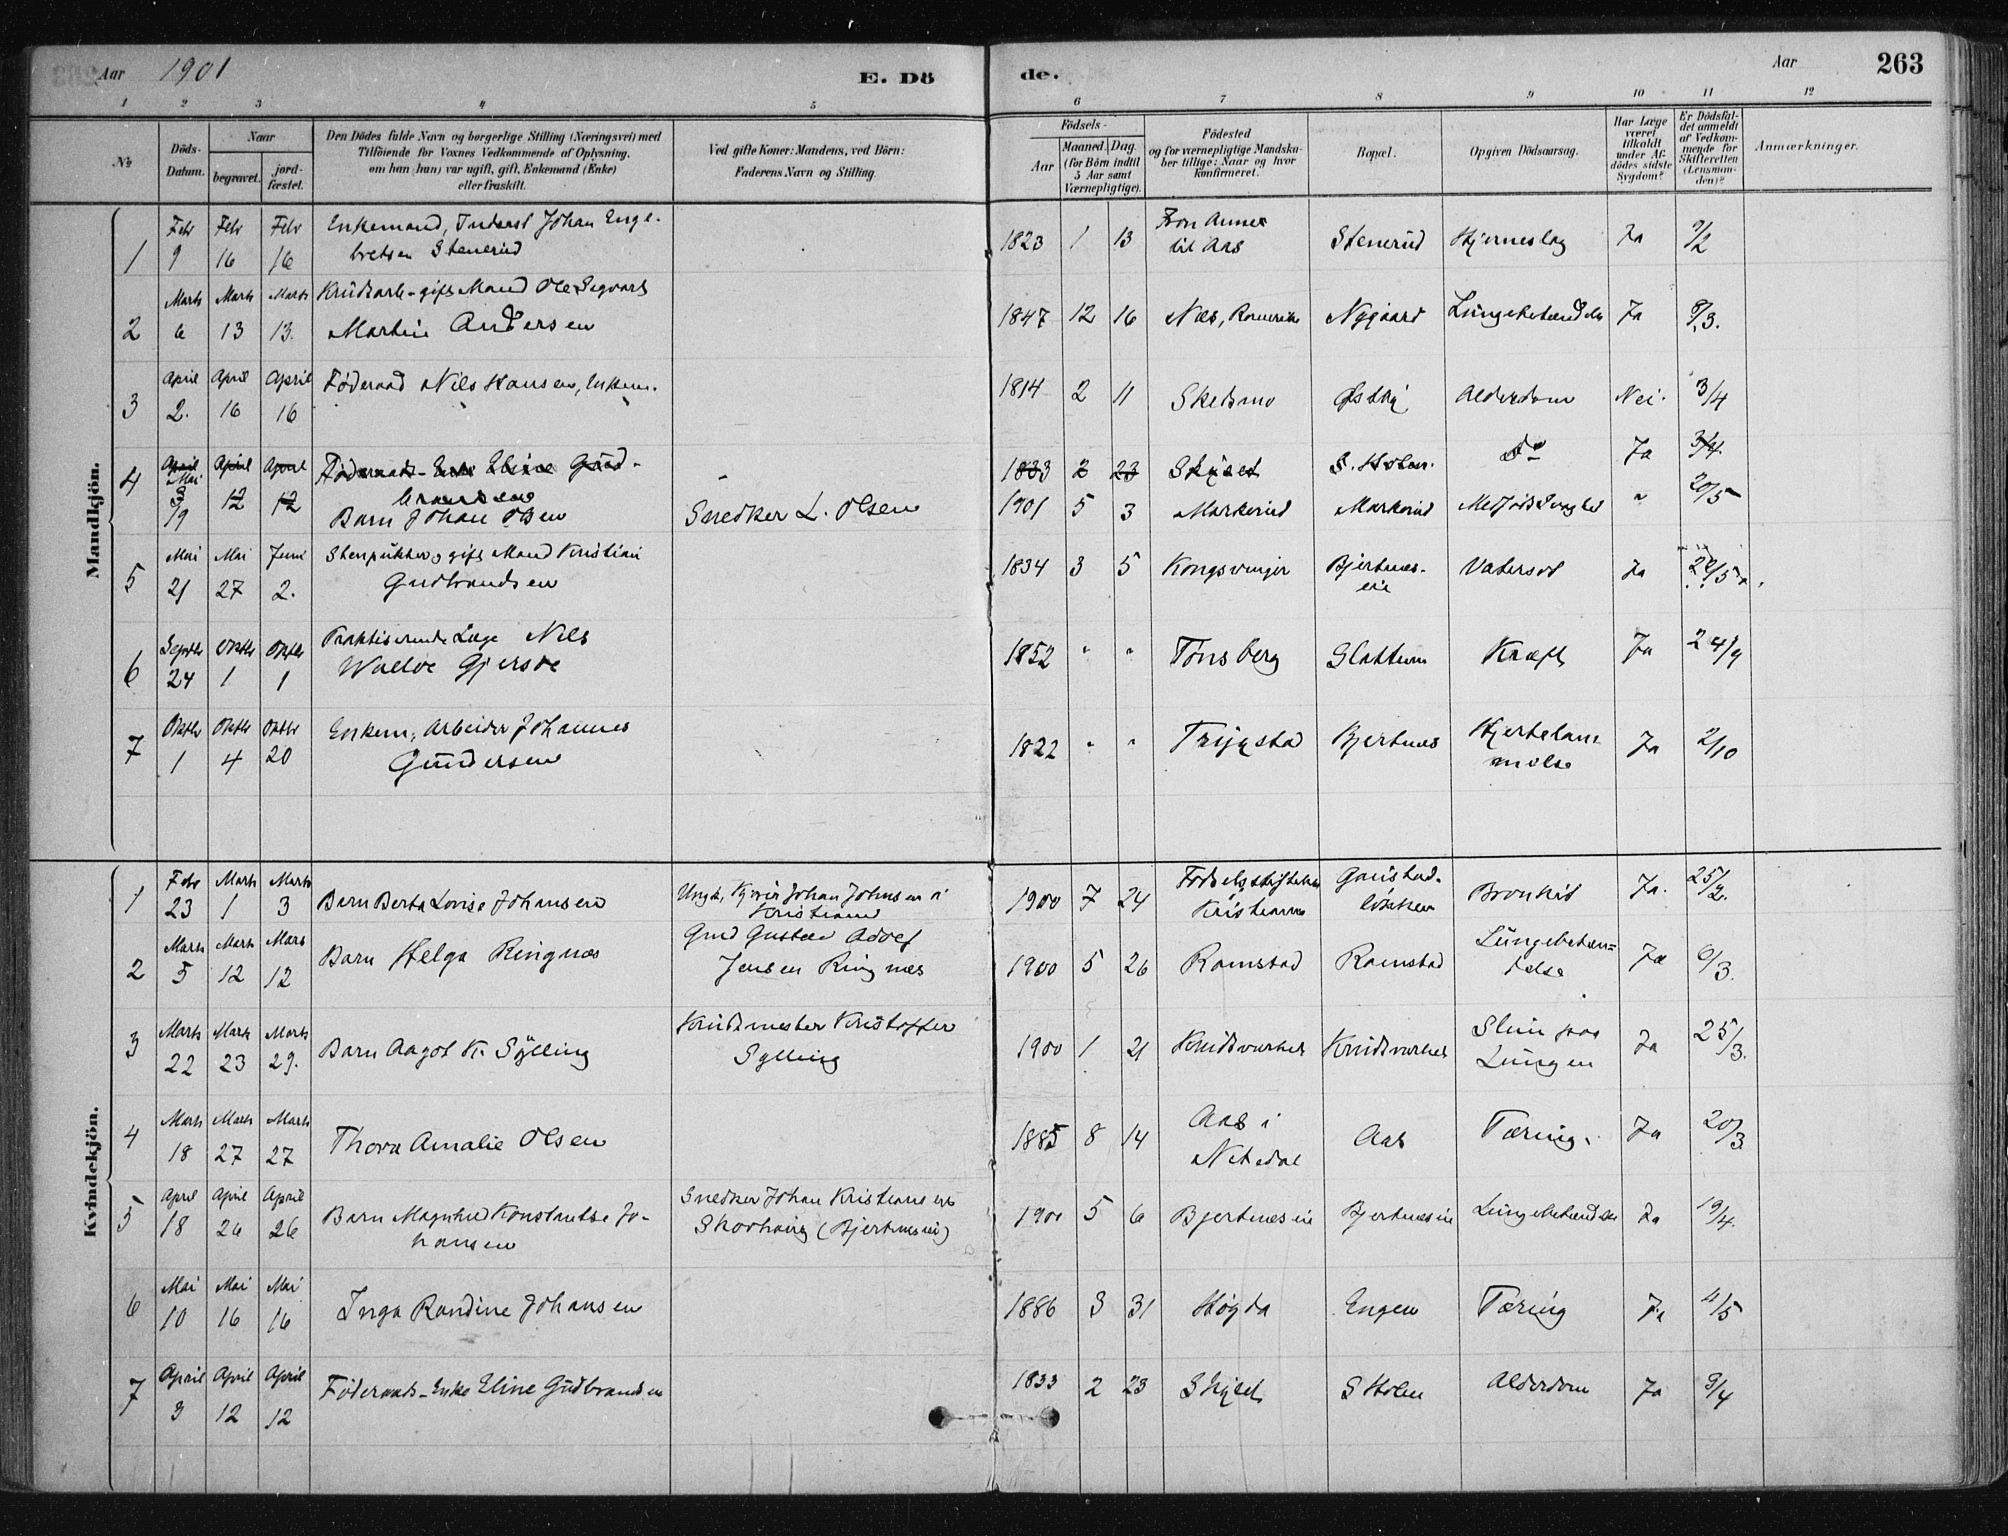 Aar 1901 E. Dö
de. Aar 263
1 2 3 4 5 6 7 8 9 10 11 12
No
Döds-Datum.
Naar
begravet.
jord-fæstet.
Den Dödes fulde Navn og borgerlige Stilling (Næringsvei) med
Tilföiende for Voxnes Vedkommende af Oplysning.
om han (hun) var ugift, gift, Enkemand (Enke)
eller fraskilt.
Ved gifte Koner: Mandens, ved Börn:
Faderens Navn og Stilling.
Födsels-
Aar
Maaned. Dag.
(for Börn indtil
5 Aar samt
Værnepligtige).
Födested
og for værnepligtige Mandska-
ber tillige: Naar og hvor
konfirmeret.
Bopæl.
Opgiven Dödsaarsag.
Har Læge
været
tilkaldt
under Af-
dödes sidste
Sygdom?
Er Dödsfal-
det anmeldt
af Vedkom-
mende for
Skifteretten
(Lensman-
den)?
Anmærkninger.
Mandkjön.
Febr Febr Febr Enkemand, Inderst Johan Enge-
1 9 16 16 bretsen Stenerud 1823 1 13 til Aas Stenerud Hjerneslag Ja 9/2
Marts Marts Marts gift Mand Ole Segvart
2 6 13 13. Martin Andersen 1847 12 16 Næs, Romerike Nygaard Ja 8/3.
April April April Føderaad Nils Hansen, Enkem.
3 2. 16 16 1814 2 11 Skedsmo Alderdom Nei. 3/4
April April April Føderaads-Enke Eline Gud-
4 3 12 12 brandsen 1833 2 23 Skyset S. Holen. do Ja 3/4.
Mai
19 Barn Johan Olsen Snedker L. Olsen 1901 5 3 Markerud Markerud Medfødt Svaghed " 20/5
Mai Mai Juni gift Mand Kristian
5 21 27 2. Gudbrandsen 1834 3 5 Kongsvinger Bjertnes-
eie Vatersot Ja 22/5
Septbr Oktbr Oktbr Praktiserende Læge Nils
6 24 1 1 Gjersøe 1852 " " Tønsberg Slattum Kræft Ja 24/9
Oktbr Oktbr Oktbr Enkem, Arbeider Johannes
7 1 4 20 Gundersen 1822 " " Trygstad Bjertnæs Hjertelam-
melse Ja 2/10
Kvindekjön.
Febr Marts Marts
1 23 1 3 Barn Berta Lovise Johansen Ungk, Johan Johnsen i
Kristiania 1900 7 24 Fødselsstiftelsen
Kristiania Gaustad-
løkken Bronkit Ja. 25/2.
Marts Marts Mars
2 5 12 12 Barn Helga Ringnæs Grd Gustav Adolf
Jensen Ringnæs 1900 5 26 Ramstad Ramstad Lungebetæn-
delse Ja 6/3.
Marts Marts Marts
3 22 23 29. Barn Aagot K. Sylling Krudtmester Kristoffer
Sylling 1900 1 21 Krudtverket Krudtverket Slim paa
Lungen Ja 25/3.
Marts Marts Marts
4 18 27 27 Thora Amalie Olsen 1885 8 14 Aas i
Nitedal Aas Tæring. Ja 20/3
April April April
5 18 26 26 Barn Magnhild Konstantse Jo-
hansen Snedker Johan Kristiansen
Skovhaug (Bjertneseie) 1900 5 6 Bjertnæseie Bjertnæseie Ja 19/4.
Mai Mai Mai
6 10 16 16 Inga Randine Johansen 1886 3 31 Høgda Engen Tæring Ja 11/5
April April April
7 3 12 12 Føderaads-Enke Eline Gudbrandsen 1833 2 23 Skyset S Holen Alderdom Ja 3/4